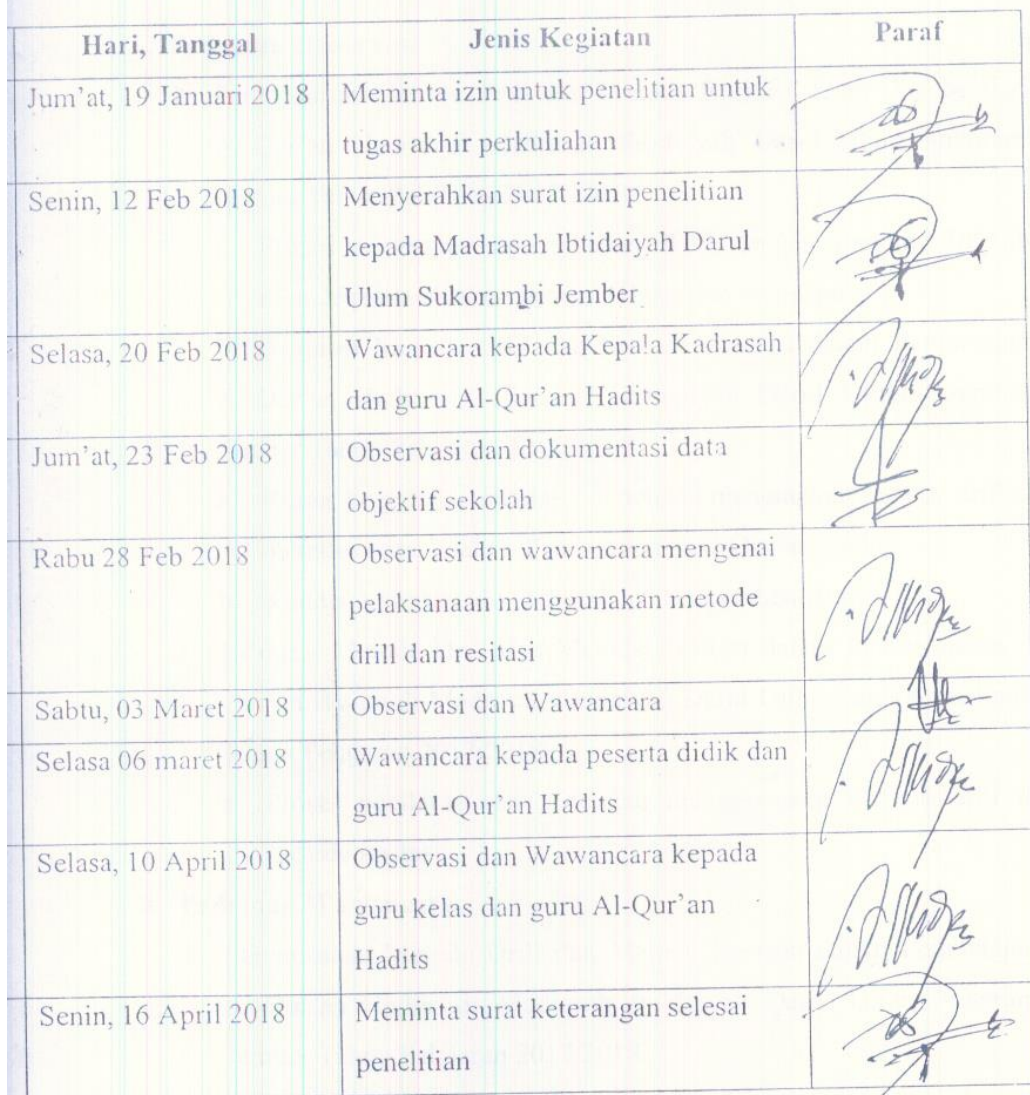 Hari, Tanggal Jenis Kegiatan Paraf
Jum'at, 19 Januari 2018 Meminta izin untuk penelitian untuk
tugas akhir perkuliahan
Senin, 12 Feb 2018 Menyerahkan surat izin penelitian
kepada Madrasah Ibtidaiyah Darul
Ulum Sukorambi Jember
Selasa, 20 Feb 2018 Wawancara kepada Kepala Kadrasah
dan guru Al-Qur'an Hadits
Jum'at, 23 Feb 2018 Observasi dan dokumentasi data
objektif sekolah
Rabu 28 Feb 2018 Observasi dan wawancara mengenai
pelaksanaan menggunakan metode
drill dan resitasi
Sabtu, 03 Maret 2018 Observasi dan Wawancara
Selasa 06 maret 2018 Wawancara kepada peserta didik dan
guru Al-Qur'an Hadits
Selasa, 10 April 2018 Observasi dan Wawancara kepada
guru kelas dan guru Al-Qur'an
Hadits
Senin, 16 April 2018 Meminta surat keterangan selesai
penelitian